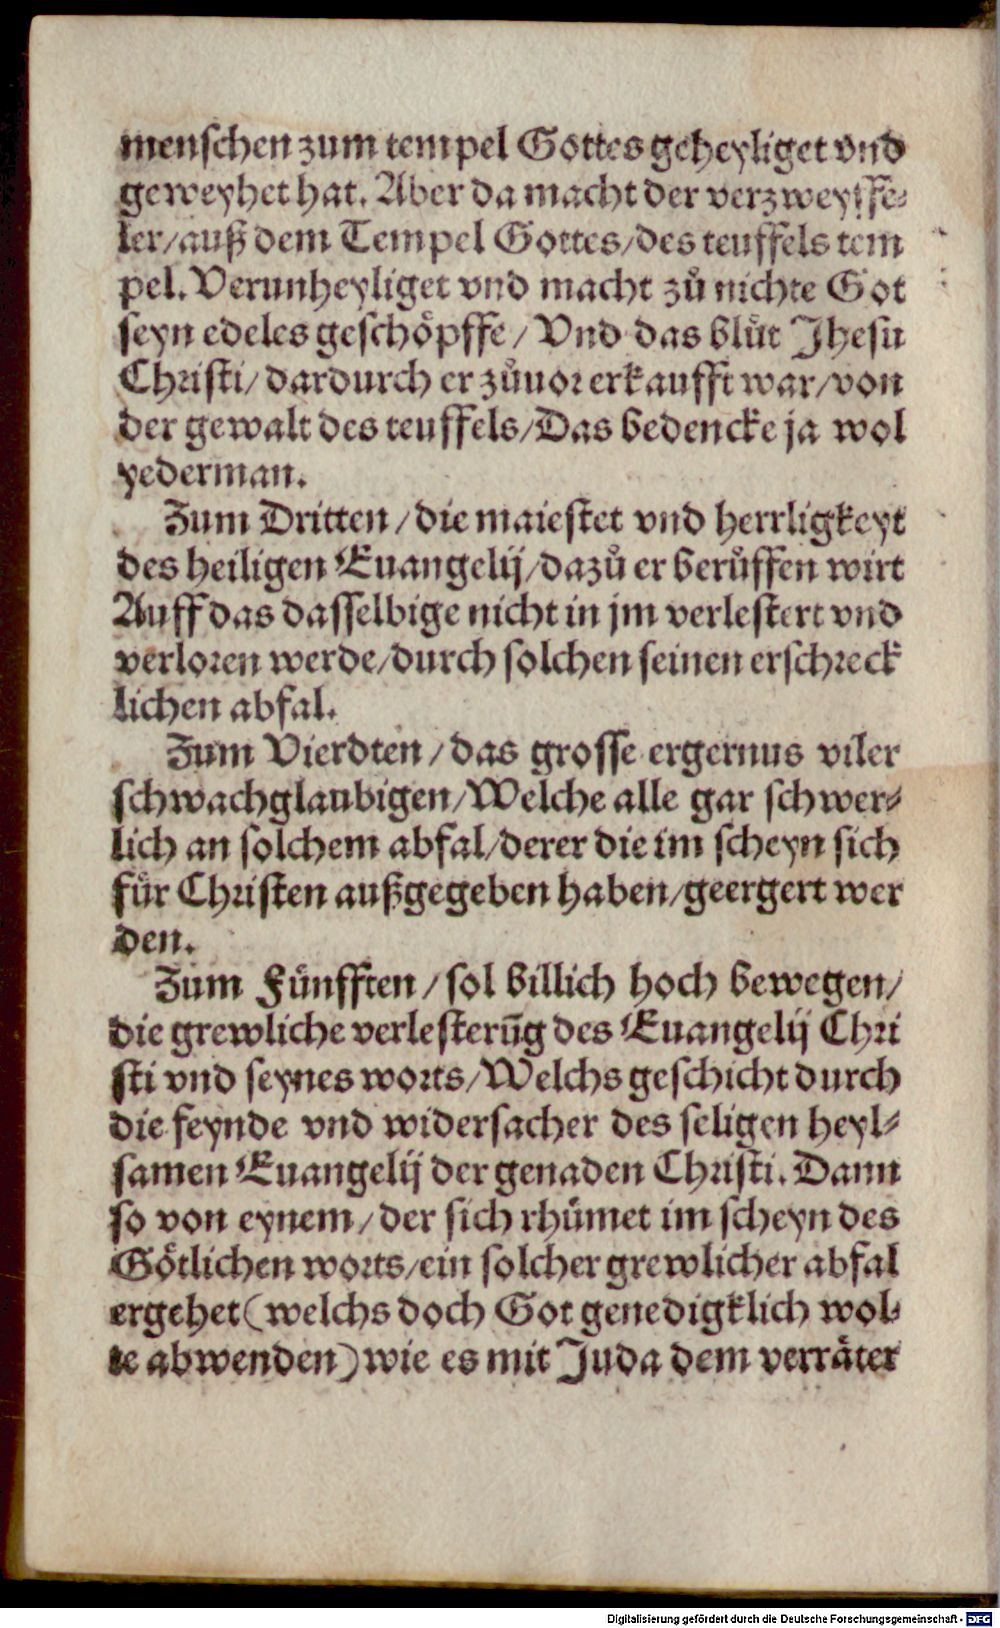 menschen zum tempel Gottes geheyliget vnd
geweyhet hat. Aber da macht der verzweyffe-
ler/ auß dem Tempel Gottes/ des teuffels tem
pel. Verunheyliget vnd macht zů nichte Got
seyn edeles geschöpffe/ Vnd das blůt Jhesu
Christi/ dardurch er zůuor erkaufft war/ von
der gewalt des teuffels/ Das bedencke ja wol
yederman.
Zum Dritten/ die maiestet vnd herrligkeyt
des heiligen Euangelij/ dazů er berůffen wirt
Auff das dasselbige nicht in jm verlestert vnd
verloren werde/ durch solchen seinen erschreck
lichen abfal.
Zum Vierdten/ das grosse ergernus viler
schwachglaubigen/ Welche alle gar schwer-
lich an solchem abfal/ derer die im scheyn sich
für Christen außgegeben haben/ geergert wer
den.
Zum Fünfften/ sol billich hoch bewegen/
die grewliche verlesterūg des Euangelij Chri
sti vnd seynes worts/ Welchs geschicht durch
die feynde vnd widersacher des seligen heyl-
samen Euangelij der genaden Christi. Dann
so von eynem/ der sich rhümet im scheyn des
Götlichen worts/ ein solcher grewlicher abfal
ergehet (welchs doch Got genedigklich wol-
te abwenden) wie es mit Juda dem verräter
Digitalisierung gefördert durch die Deutsche Forschungsgemeinschaft - DFG